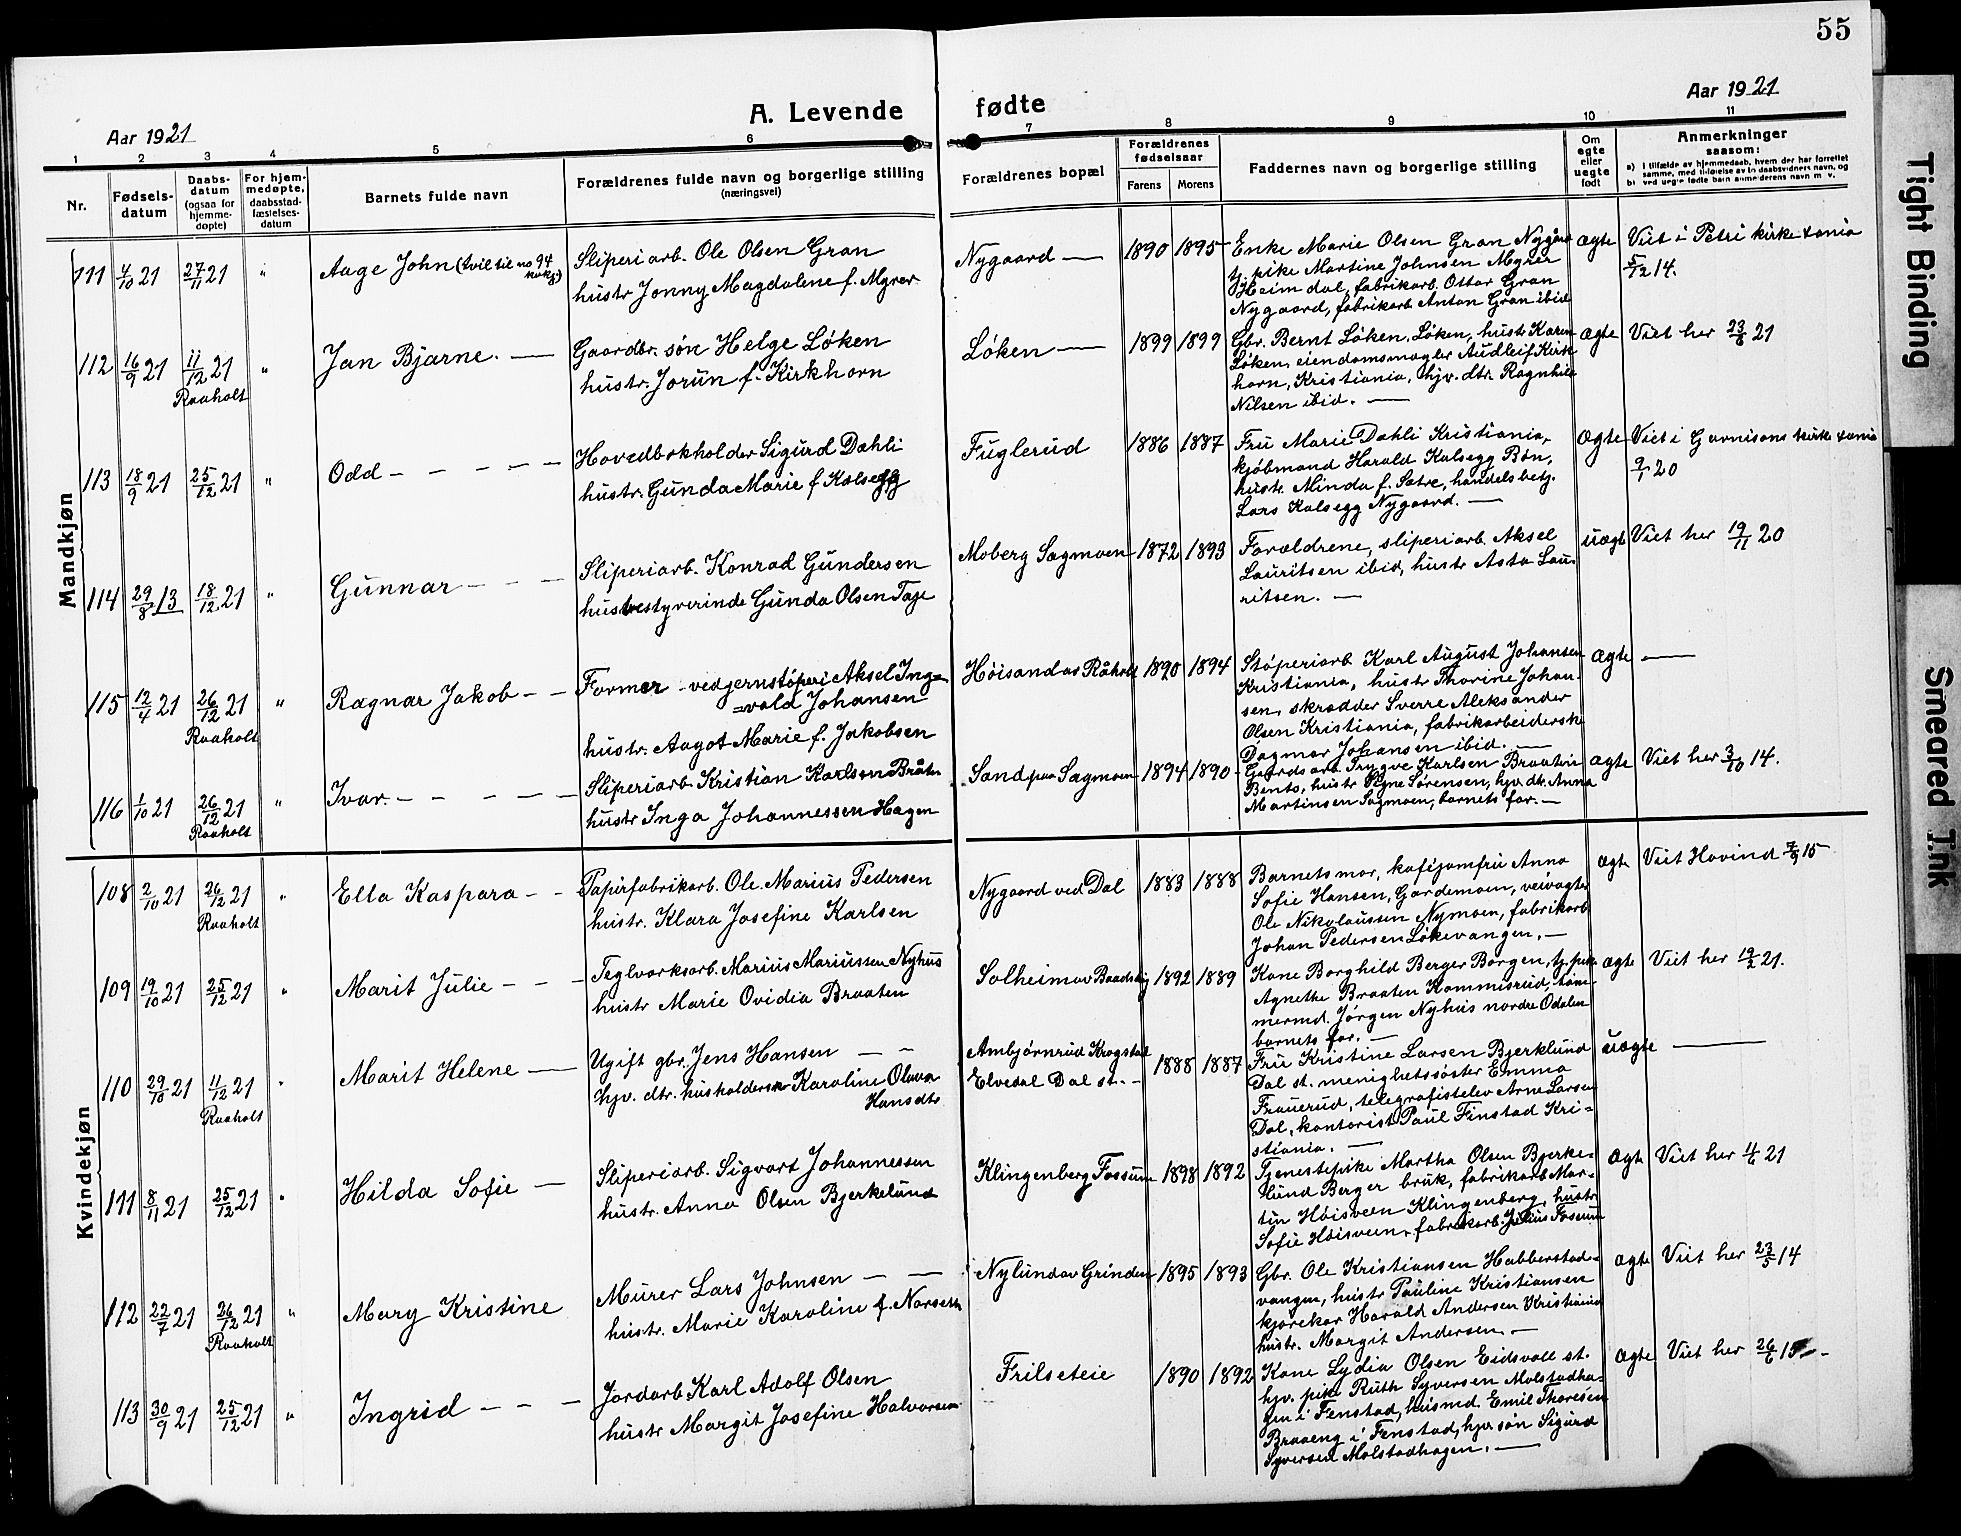 55
A. Levende fødte
Aar 1921
Aar 1921
1 2 3 4 5 6 7 8 9 10 11
Nr.
Fødsels-
datum
Daabs-
datum
(ogsaa for
hjemme-
døpte)
For hjem-
medøpte,
daabsstad-
fæstelses-
datum
Barnets fulde navn
Forældrenes fulde navn og borgerlige stilling
(næringsvei)
Forældrenes bopæl
Forældrenes
fødselsaar
Farens Morens
Faddernes navn og borgerlige stilling
Om
egte
eller
uegte
født
Anmerkninger
saasom:
a) i tilfælde av hjemmedaab, hvem der har forrettet
samme, med tilføielse av to daabsvidners navn, og
b) ved uegte fødte barn anmelderens navn m. v.
Mandkjøn
111 4/10 21 27/11 21 " Aage John (tvil til no 94
Sliperiarb. Ole Olsen Gran
hustr Jonny Magdalene f. Myrer
Nygaard — 1890 1895
Enke Marie Olsen Gran Nygård
tj. pike Martine Johnsen Myrer
Heimdal, fabrikarb. Ottar Gran
Nygaard, fabrikarb Anton Gran ibid
ægte Viet i Petri kirke xania
5/12 14.
112 16/9 21 11/12 21 " Jan Bjarne. —
Raaholt
Gaardbr. søn Helge Løken
hustr. Jorun f. Kirkhorn
Løken — 1899 1899
Gbr. Bernt Løken, Løken, hustr Karen
Løken, eiendomsmægler Audleif Kirk
horn, Kristiania, hjv. dtr. Ragnhild
Nilsen ibid. —
ægte Viet her 23/6 21
113 18/9 21 25/12 21 " Odd — — — — —
Hovedbokholder Sigurd Dahli
hustr. Gunda Marie f Kalsegg
Fuglerud 1886 1887
Fru Marie Dahli Kristiania,
kjøbmand Harald Kalsegg Bøn,
hustr. Minda f. Sætre, handelsbetj.
Lars Kalsegg Nygaard. —
ægte Viet i Garnisons kirke xania
9/1 20
114 29/8 13 18/12 21 " Gunnar — — —
Sliperiarb. Konrad Gundersen
husbestyrerinde Gunda Olsen Tage
Moberg Sagmoen 1872 1893
Forældrene, sliperiarb. Aksel
Lauritsen ibid, hustr Asta Lau-
ritsen. —
uægt Viet her 19/11 20
115 12/4 21 26/12 21 " Ragnar Jakob — —
Raaholt
Former ved jernstøperi Aksel Inge-
=vald Johansen
hustr. Aagot Marie f. Jakobsen
Høisand as Råholt 1890 1894
Støperiarb Karl August Johansen
Kristiania, hustr Thorine Johan-
sen, skrædder Sverre Aleksander
Olsen Kristiania, fabrikarbeiderske
Dagmar Johansen ibid. —
ægte —
116 1/10 21 26/12 21 " Ivar. — — — — —
Raaholt
Sliperiarb Kristian Karlsen Bråten
hustr Inga Johannessen Hagen
Sand paa Sagmoen 1894 1890
Gaardsarb Trygve Karlsen Braaten
Bents, hustr Signe Sørensen, hjv. dtr. Anna
Martinsen Sagmoen, barnets far. —
ægte Viet her 3/10 14.
Kvindekjøn
108 2/10 21 26/12 21 " Ella Kaspara — —
Raaholt
Papirfabrikarb. Ole Marius Pedersen
hustr. Klara Josefine Karlsen
Nygaard ved Dal 1883 1888
Barnets mor, kaféjomfru Anna
Sofie Hansen, Gardemoen, veivogter
Ole Nikolaussen Nymoen, fabrikarb
Johan Pedersen Løkevangen. —
ægte Viet Hovind 7/9 15
109 19/10 21 25/12 21 " Marit Julie — — —
Teglverksarb. Marius Mariussen Nyhus
hustr Marie Ovidia Braaten
Solheim av Baadstø 1892 1889
Kone Borghild Berger Borgen, tj. pike
Agnethe Braaten Kommisrud, tøm-
mermd. Jørgen Nyhus nordre Odalen
barnets far. —
ægte Viet her 19/2 21.
110 29/10 21 11/12 21 " Marit Helene —
Raaholt
Ugift gbr. Jens Hansen — —
hjv. dtr. husholderske Karoline Olava
Hansdtr
Ambjørnrud Krogstad
Elvedal Dal st. —
1888 1887
Fru Kristine Larsen Bjerklund
Dal st. menighetssøster Emma
Frauerud, telegrafistelev Arne Larsen
Dal, kontorist Paul Finstad Kri=
stiania. —
uægte —
111 8/11 21 25/12 21 " Hilda Sofie —
Sliperiarb. Sigvart Johannessen
hustr. Anna Olsen Bjerkelund
Klingenberg Fossum 1898 1892
Tjenestepike Martha Olsen Bjerke-
lund Berger bruk, fabrikarb Mar-
tin Høisveen Klingenberg, hustr
Sofie Høisveen, fabrikarb. Julius Fossum
ægt Viet her 4/6 21
112 22/7 21 26/12 21 " Mary Kristine
Raaholt
Murer Lars Johnsen — —
hustr. Marie Karoline f. Norseth
Nylund av Grinden 1895 1893
Gbr. Ole Kristiansen Habberstad-
vangen, hustr Pauline Kristiansen
kjørekar Harald Andersen Kristiania
hustr. Margit Andersen. —
ægte Viet her 23/5 14
113 30/9 21 25/12 21 " Ingrid — — —
Jordarb Karl Adolf Olsen
hustr Margit Josefine Halvorsen
Frilseteie 1890 1892
Kone Lydia Olsen Eidsvoll st.
hjv. pike Ruth Syversen Molstadha-
gen i Fenstad, husmd. Emil Thoresen
Braaeng i Fenstad, hjv. søn Sigurd
Syversen Molstadhagen. —
ægte Viet her 26/6 15
Tight Binding
Smeared Ink